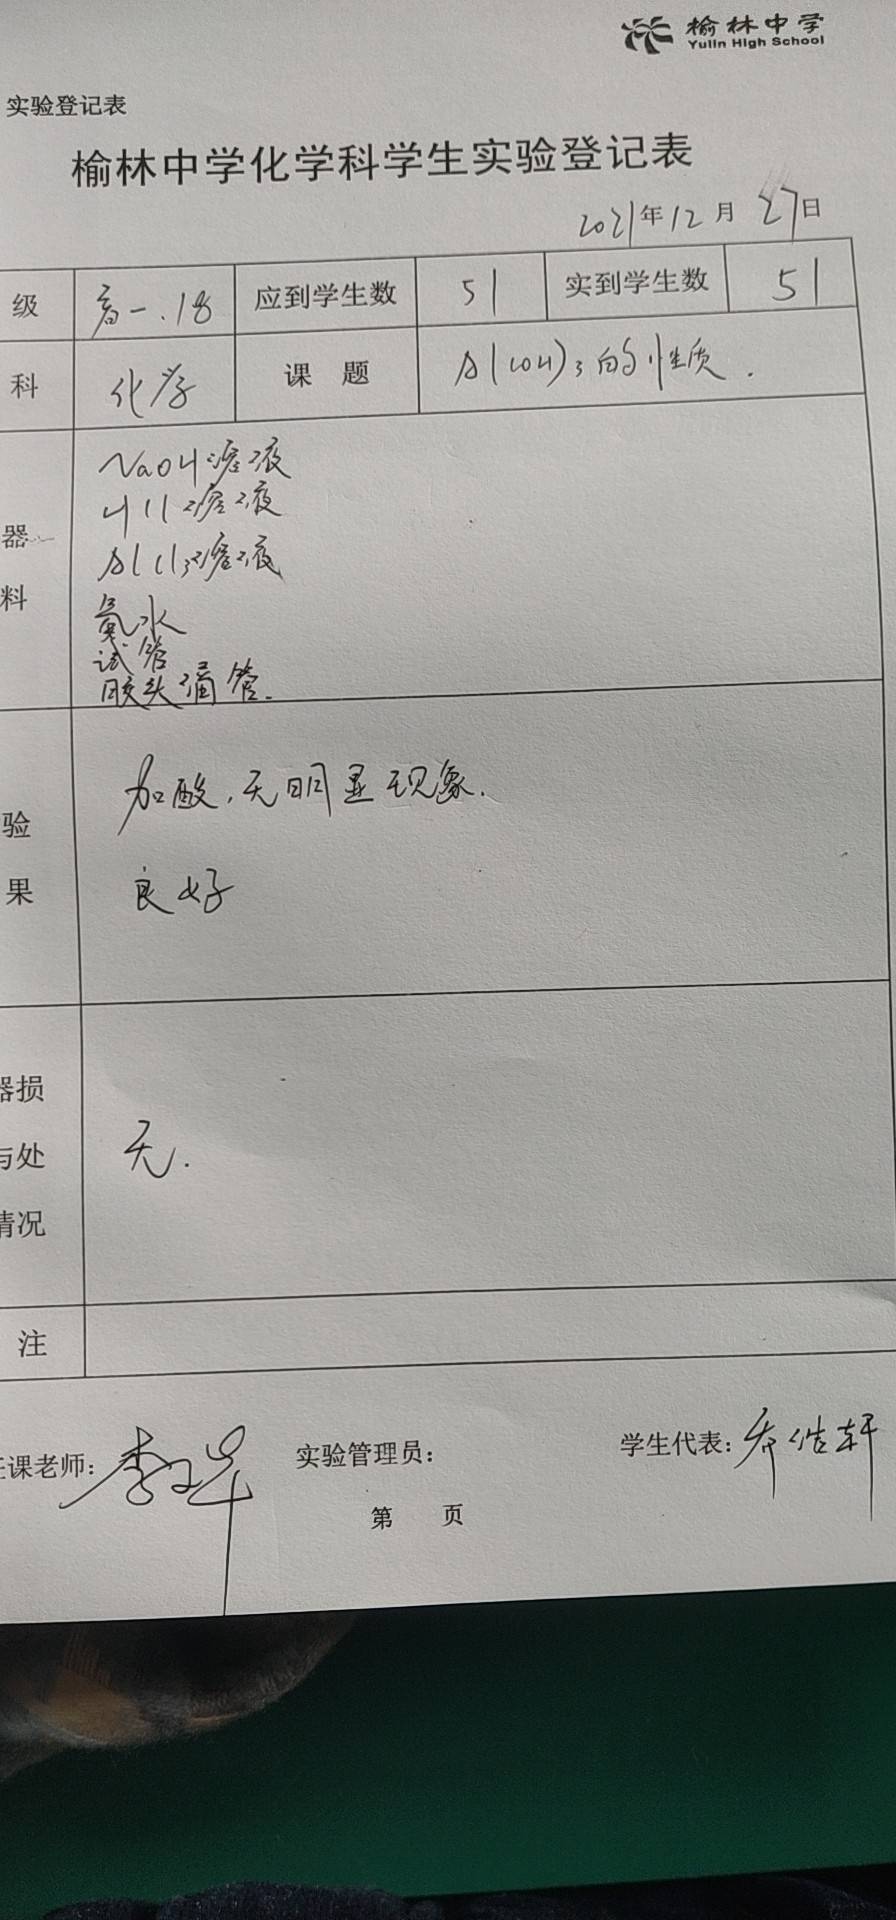 榆林中学
Yulin High School
实验登记表
榆林中学化学科学生实验登记表
2021年12月27日
级 高一.18 应到学生数 51 实到学生数 51
科 化学 课 题 Al(OH)3的性质.
器
料
NaOH溶液
HCl溶液
AlCl3溶液
氨水
试管
胶头滴管.
验
果
加酸,无明显现象.
良好
器损
与处
情况
无.
注
任课老师: 实验管理员: 学生代表: 乔浩轩
第 页